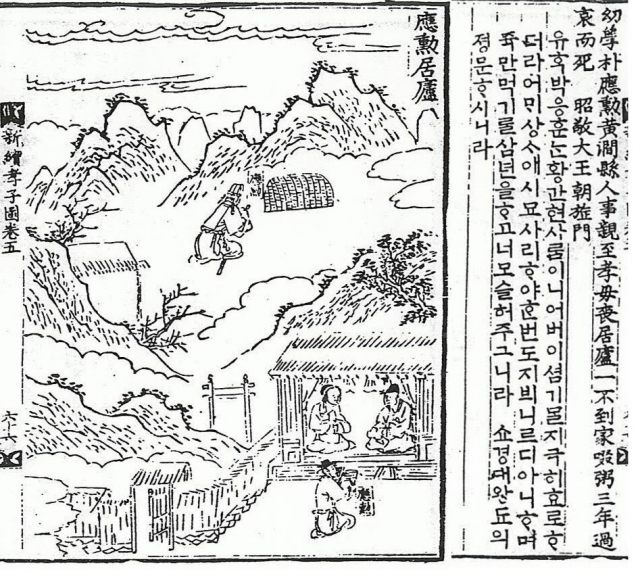 幼學朴應勳黃澗縣人事親至孝母喪居廬一不到家啜粥三年過
哀而死 昭敬大王朝旌門
유ᄒᆞᆨ박응훈ᄂᆞᆫ황간현사ᄅᆞᆷ이니어버이셤기ᄆᆞᆯ지극히효로ᄒᆞ
더라어미상ᄉᆞ애시묘사리ᄒᆞ야ᄒᆞᆫ번도지븨니르디아니ᄒᆞ며
쥭만먹기ᄅᆞᆯ삼년을ᄒᆞ고너모슬허주그니라 쇼경대왕됴의
졍문ᄒᆞ시니라
應勳居廬
應勳
應勳
新續孝子圖卷五
六十六